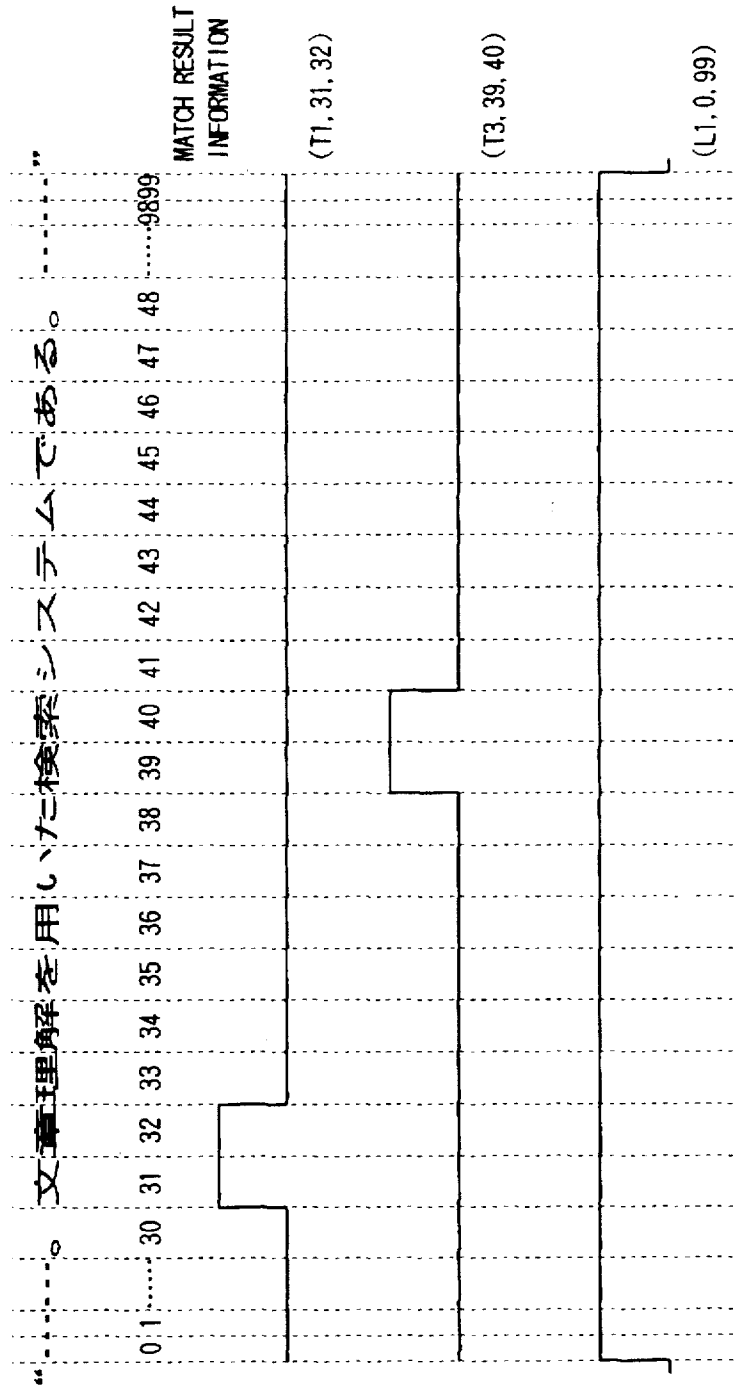 “------。文章理解を用いた検索システムである。------”
0 1 ...... 30 31 32 33 34 35 36 37 38 39 40 41 42 43 44 45 46 47 48 ......9899
MATCH RESULT
INFORMATION
(T1, 31, 32)
(T3, 39, 40)
(L1, 0, 99)